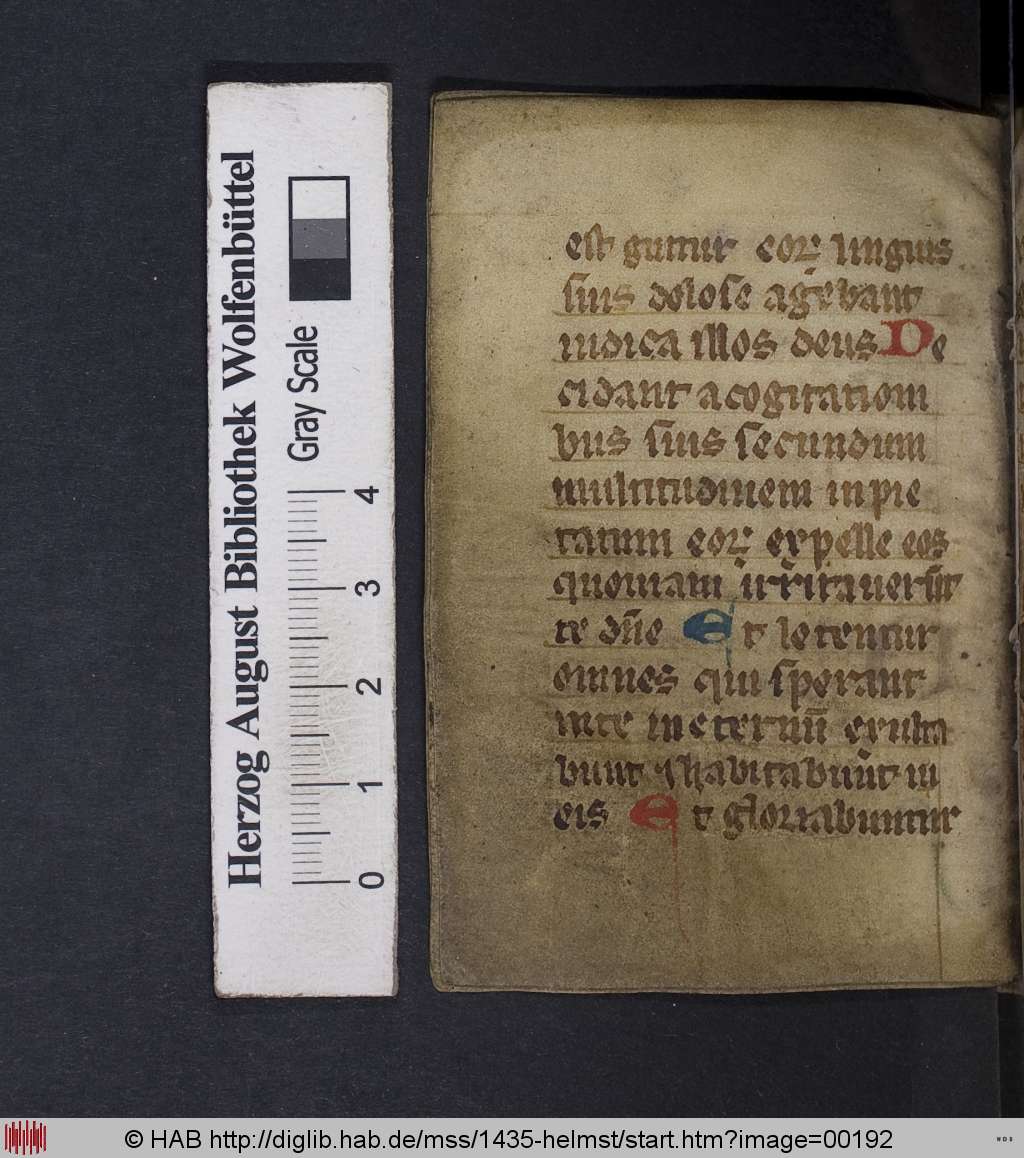 Herzog August Bibliothek Wolfenbüttel
Gray Scale
0 1 2 3 4
est guttur eoꝝ linguis
suis dolose agebant
iudica illos deus De
cidant a cogitationi
bus suis secundum
multitudinem inpie
tatum eoꝝ expelle eos
quoniam irritauerūt
te dn̄e Et letentur
omnes qui sperant
in te in eternū exulta
bunt ⁊ habitabunt in
eis Et gloriabuntur
© HAB http://diglib.hab.de/mss/1435-helmst/start.htm?image=00192
HAB